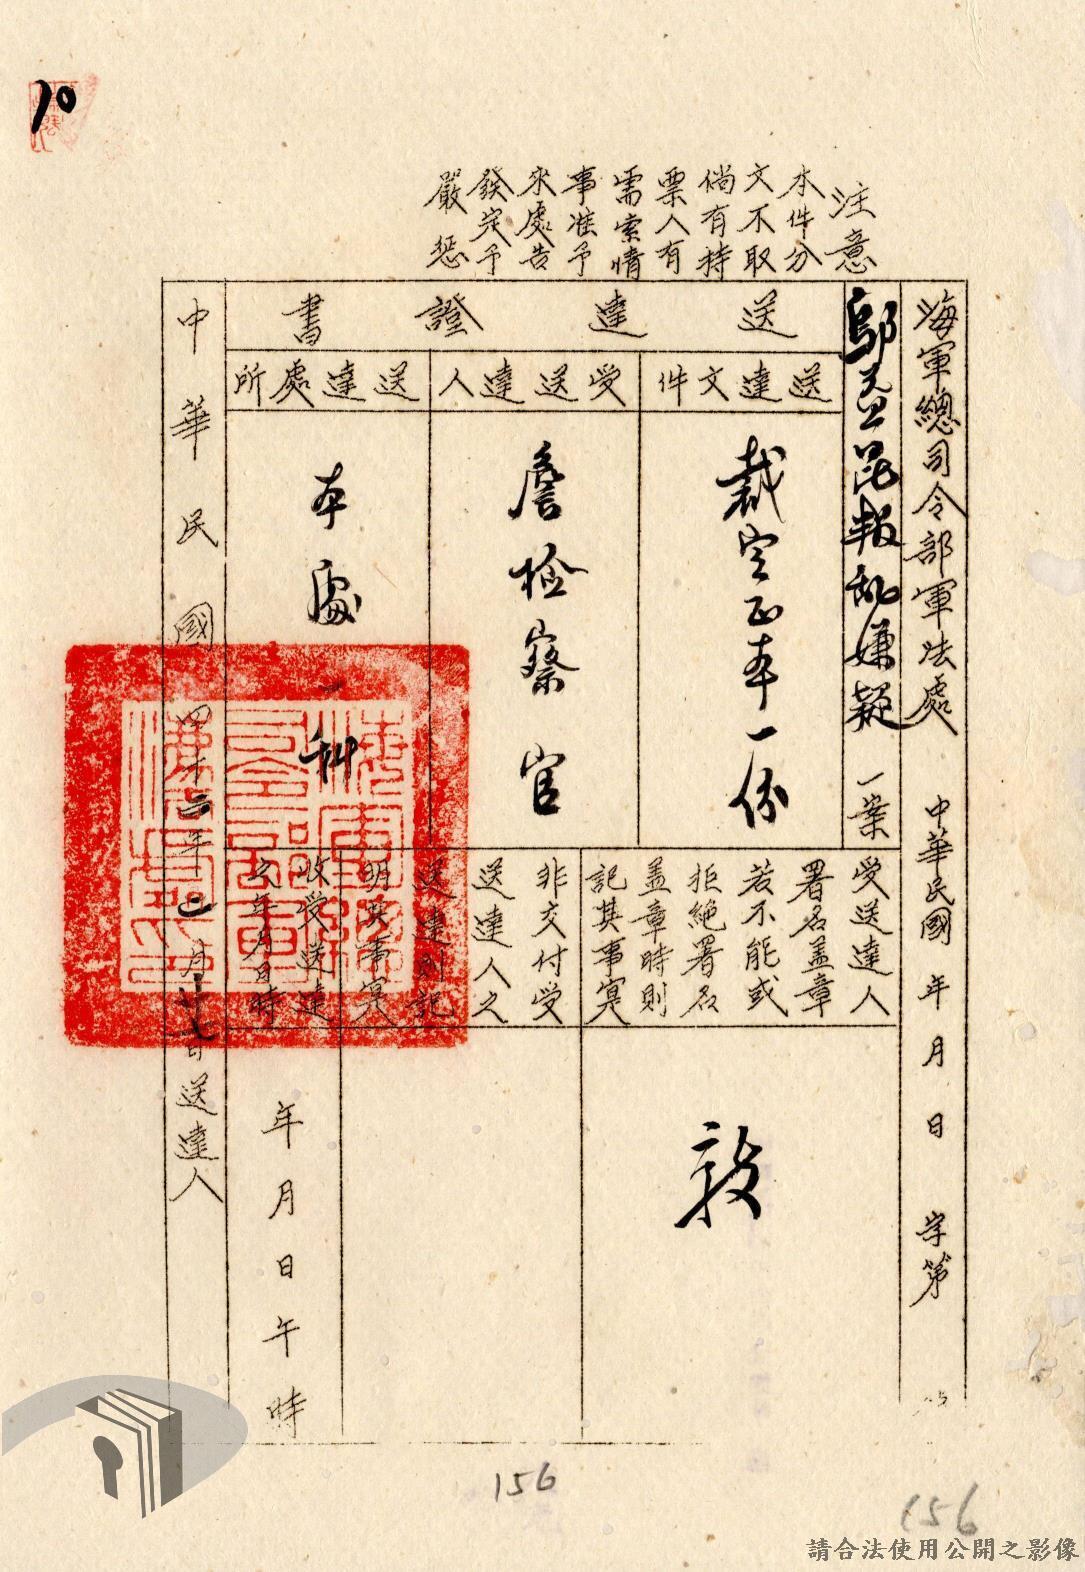 10
注意
本件分
文不取
倘有持
票人有
需索情
事准予
來處告
發定予
嚴懲
海軍總司令部軍法處　中華民國　年　月　日　字第
鄔孟昆叛亂嫌疑一案
送達證書
送達文件
裁定正本一份
受送達人
詹檢察官
送達處所
本處一科
受送達人
署名蓋章
若不能或
拒絕署名
蓋章時則
記其事實
非交付受
送達人之
送達則記
明其事實
收受送達
之年月日時
年　月　日　午　時
中華民國四十二年　月　日送達人
海軍總司令部軍法處印
156
156
請合法使用公開之影像